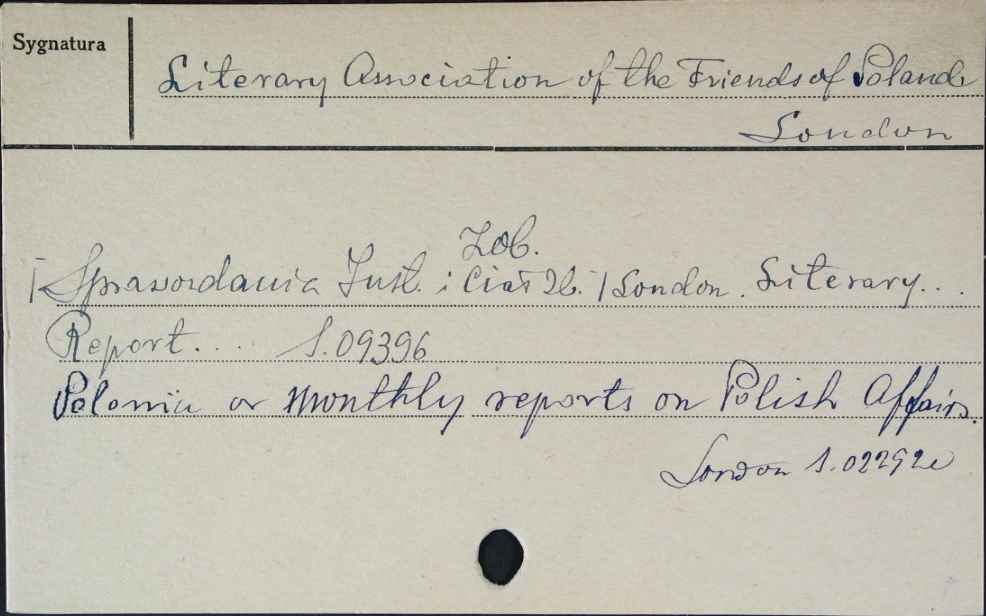 Sygnatura
Literary Association of the Friends of Poland
London
Zob.
|Sprawozdania Inst. i Ciał Zb.| London. Literary...
Report.... S.09396
Polonia or Monthly reports on Polish Affairs.
London S.02292